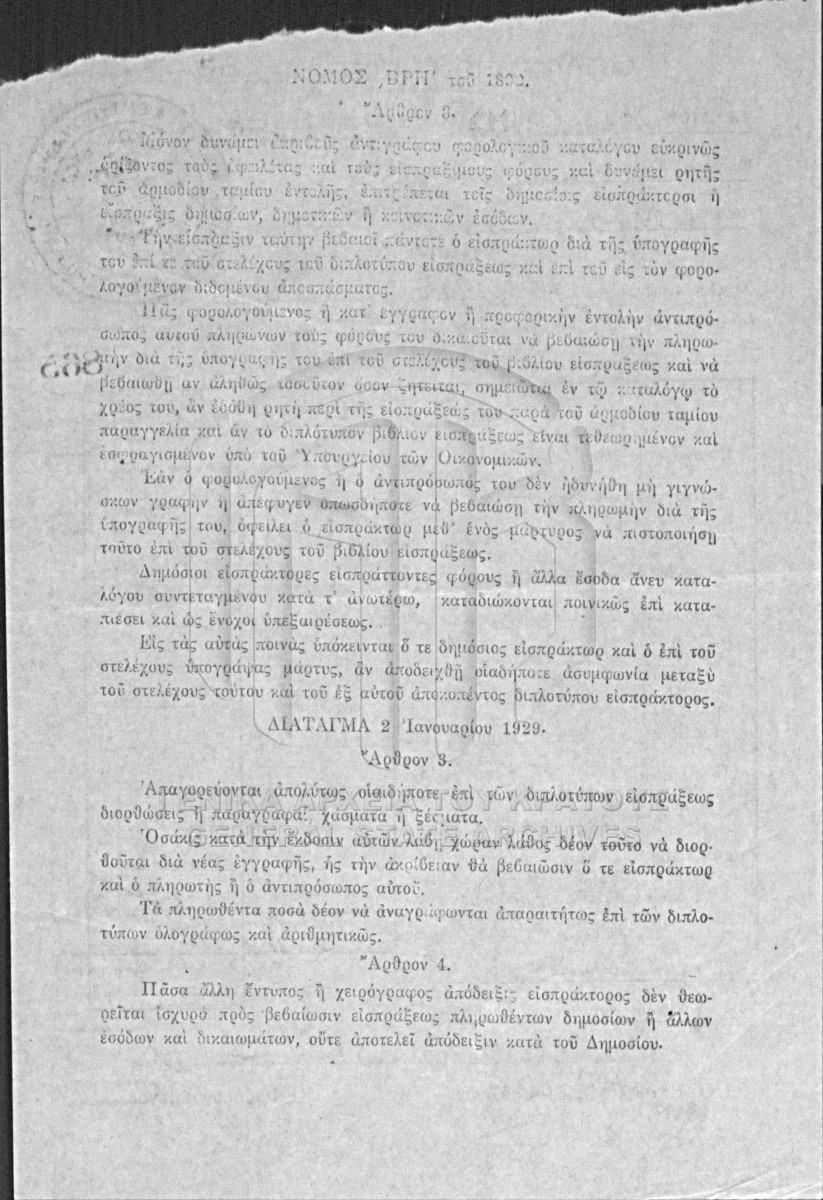 ΝΟΜΟΣ ͵ΒΡΠʹ τοῦ 1892.
Ἄρθρον 3.
Μόνον δυνάμει ἀκριβοῦς ἀντιγράφου φορολογικοῦ καταλόγου εὐκρινῶς
ὁρίζοντος τοὺς ὀφειλέτας καὶ τοὺς εἰσπραξίμους φόρους καὶ δυνάμει ρητῆς
τοῦ ἁρμοδίου ταμίου ἐντολῆς, ἐπιτρέπεται τοῖς δημοσίοις εἰσπράκτορσι ἡ
εἴσπραξις δημοσίων, δημοτικῶν ἢ κοινοτικῶν ἐσόδων.
Τὴν εἴσπραξιν ταύτην βεβαιοῖ πάντοτε ὁ εἰσπράκτωρ διὰ τῆς ὑπογραφῆς
του ἐπί τε τοῦ στελέχους τοῦ διπλοτύπου εἰσπράξεως καὶ ἐπὶ τοῦ εἰς τὸν φορο-
λογούμενον διδομένου ἀποσπάσματος.
Πᾶς φορολογούμενος ἢ κατ' ἔγγραφον ἢ προφορικὴν ἐντολὴν ἀντιπρό-
σωπος αὐτοῦ πληρώνων τοὺς φόρους του δικαιοῦται νὰ βεβαιώσῃ τὴν πληρω-
μὴν διὰ τῆς ὑπογραφῆς του ἐπὶ τοῦ στελέχους τοῦ βιβλίου εἰσπράξεως καὶ νὰ
βεβαιωθῇ ἂν ἀληθῶς τοσοῦτον ὅσον ζητεῖται, σημειῶται ἐν τῷ καταλόγῳ τὸ
χρέος του, ἂν ἐδόθη ρητὴ περὶ τῆς εἰσπράξεώς του παρὰ τοῦ ἁρμοδίου ταμίου
παραγγελία καὶ ἂν τὸ διπλότυπον βιβλίον εἰσπράξεως εἶναι τεθεωρημένον καὶ
ἐσφραγισμένον ὑπὸ τοῦ Ὑπουργείου τῶν Οἰκονομικῶν.
Ἐὰν ὁ φορολογούμενος ἢ ὁ ἀντιπρόσωπός του δὲν ἠδυνήθη μὴ γιγνώ-
σκων γραφὴν ἢ ἀπέφυγεν ὁπωσδήποτε νὰ βεβαιώσῃ τὴν πληρωμὴν διὰ τῆς
ὑπογραφῆς του, ὀφείλει ὁ εἰσπράκτωρ μεθ' ἑνὸς μάρτυρος νὰ πιστοποιήσῃ
τοῦτο ἐπὶ τοῦ στελέχους τοῦ βιβλίου εἰσπράξεως.
Δημόσιοι εἰσπράκτορες εἰσπράττοντες φόρους ἢ ἄλλα ἔσοδα ἄνευ κατα-
λόγου συντεταγμένου κατὰ τ' ἀνωτέρω, καταδιώκονται ποινικῶς ἐπὶ κατα-
πιέσει καὶ ὡς ἔνοχοι ὑπεξαιρέσεως.
Εἰς τὰς αὐτὰς ποινὰς ὑπόκεινται ὅ τε δημόσιος εἰσπράκτωρ καὶ ὁ ἐπὶ τοῦ
στελέχους ὑπογράψας μάρτυς, ἂν ἀποδειχθῇ οἱαδήποτε ἀσυμφωνία μεταξὺ
τοῦ στελέχους τούτου καὶ τοῦ ἐξ αὐτοῦ ἀποκοπέντος διπλοτύπου εἰσπράκτορος.
ΔΙΑΤΑΓΜΑ 2 Ἰανουαρίου 1929.
Ἄρθρον 3.
Ἀπαγορεύονται ἀπολύτως οἱαιδήποτε ἐπὶ τῶν διπλοτύπων εἰσπράξεως
διορθώσεις ἢ παραγραφαί, χάσματα ἢ ξέσματα.
ΓΕΝΙΚΑ ΑΡΧΕΙΑ ΤΟΥ ΚΡΑΤΟΥΣ
GENERAL STATE ARCHIVES
Ὁσάκις κατὰ τὴν ἔκδοσιν αὐτῶν λάβῃ χώραν λάθος δέον τοῦτο νὰ διορ-
θοῦται διὰ νέας ἐγγραφῆς, ἧς τὴν ἀκρίβειαν θὰ βεβαιῶσιν ὅ τε εἰσπράκτωρ
καὶ ὁ πληρωτὴς ἢ ὁ ἀντιπρόσωπος αὐτοῦ.
Τὰ πληρωθέντα ποσὰ δέον νὰ ἀναγράφωνται ἀπαραιτήτως ἐπὶ τῶν διπλο-
τύπων ὁλογράφως καὶ ἀριθμητικῶς.
Ἄρθρον 4.
Πᾶσα ἄλλη ἔντυπος ἢ χειρόγραφος ἀπόδειξις εἰσπράκτορος δὲν θεω-
ρεῖται ἰσχυρὰ πρὸς βεβαίωσιν εἰσπράξεως πληρωθέντων δημοσίων ἢ ἄλλων
ἐσόδων καὶ δικαιωμάτων, οὔτε ἀποτελεῖ ἀπόδειξιν κατὰ τοῦ Δημοσίου.